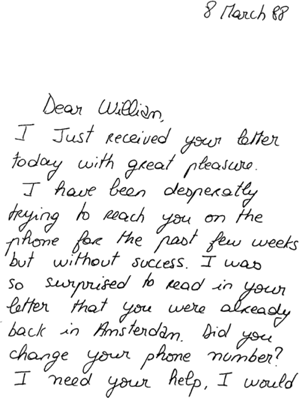 8 March 88
Dear William,
I Just received your letter
today with great pleasure.
I have been desperatly
trying to reach you on the
phone for the past few weeks
but without success. I was
so surprised to read in your
letter that you were already
back in Amsterdam. Did you
change your phone number?
I need your help, I would